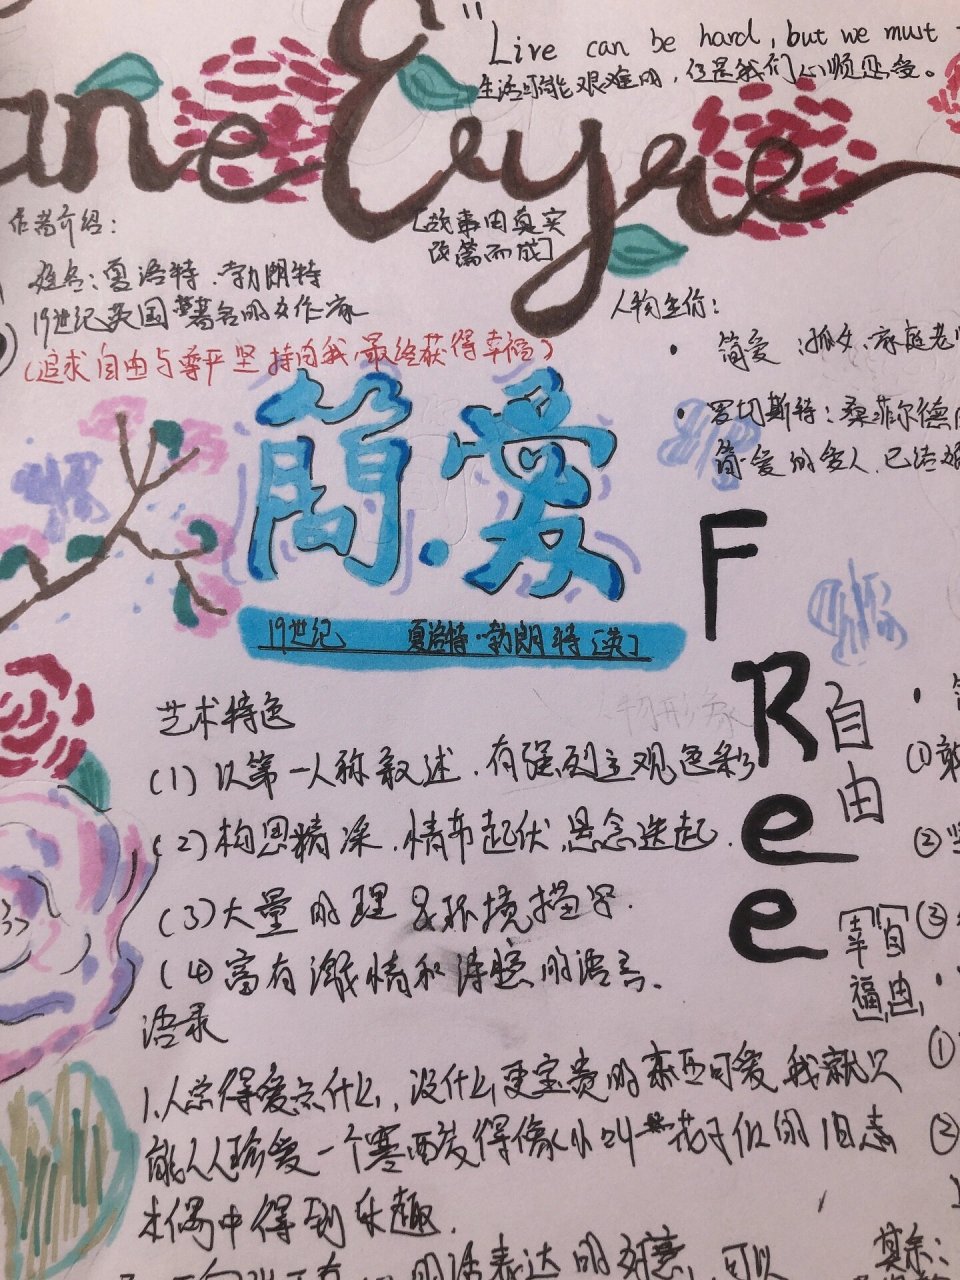 "Live can be hard, but we must
生活可能艰难的,但是我们必须恋爱。
ane Eyre
作者介绍:
[故事由真实
改篇而成]
姓名:夏洛特·勃朗特
19世纪英国著名的女作家
(追求自由与尊严坚持自我最终获得幸福)
人物生价:
• 简爱:孤女、家庭老
• 罗切斯特:桑菲尔德
简·爱的爱人.已结婚
簡·爱
19世纪 夏洛特·勃朗特[英]
FRee
自由
艺术特色
(1)以第一人称叙述.有强烈主观色彩
(2)构思精深.情节起伏.悬念迭起.
(3)大量的理&环境描写.
(4)富有激情和诗的语言.
[幸福]
[自由]
①
②
③
①
②
语录
1.人总得爱点什么,没什么更宝贵的东西可爱我就只
能从珍爱一个寒西发得像小叫花子似的旧
木偶中得到乐趣.
的话表达的好意,可以
其余: